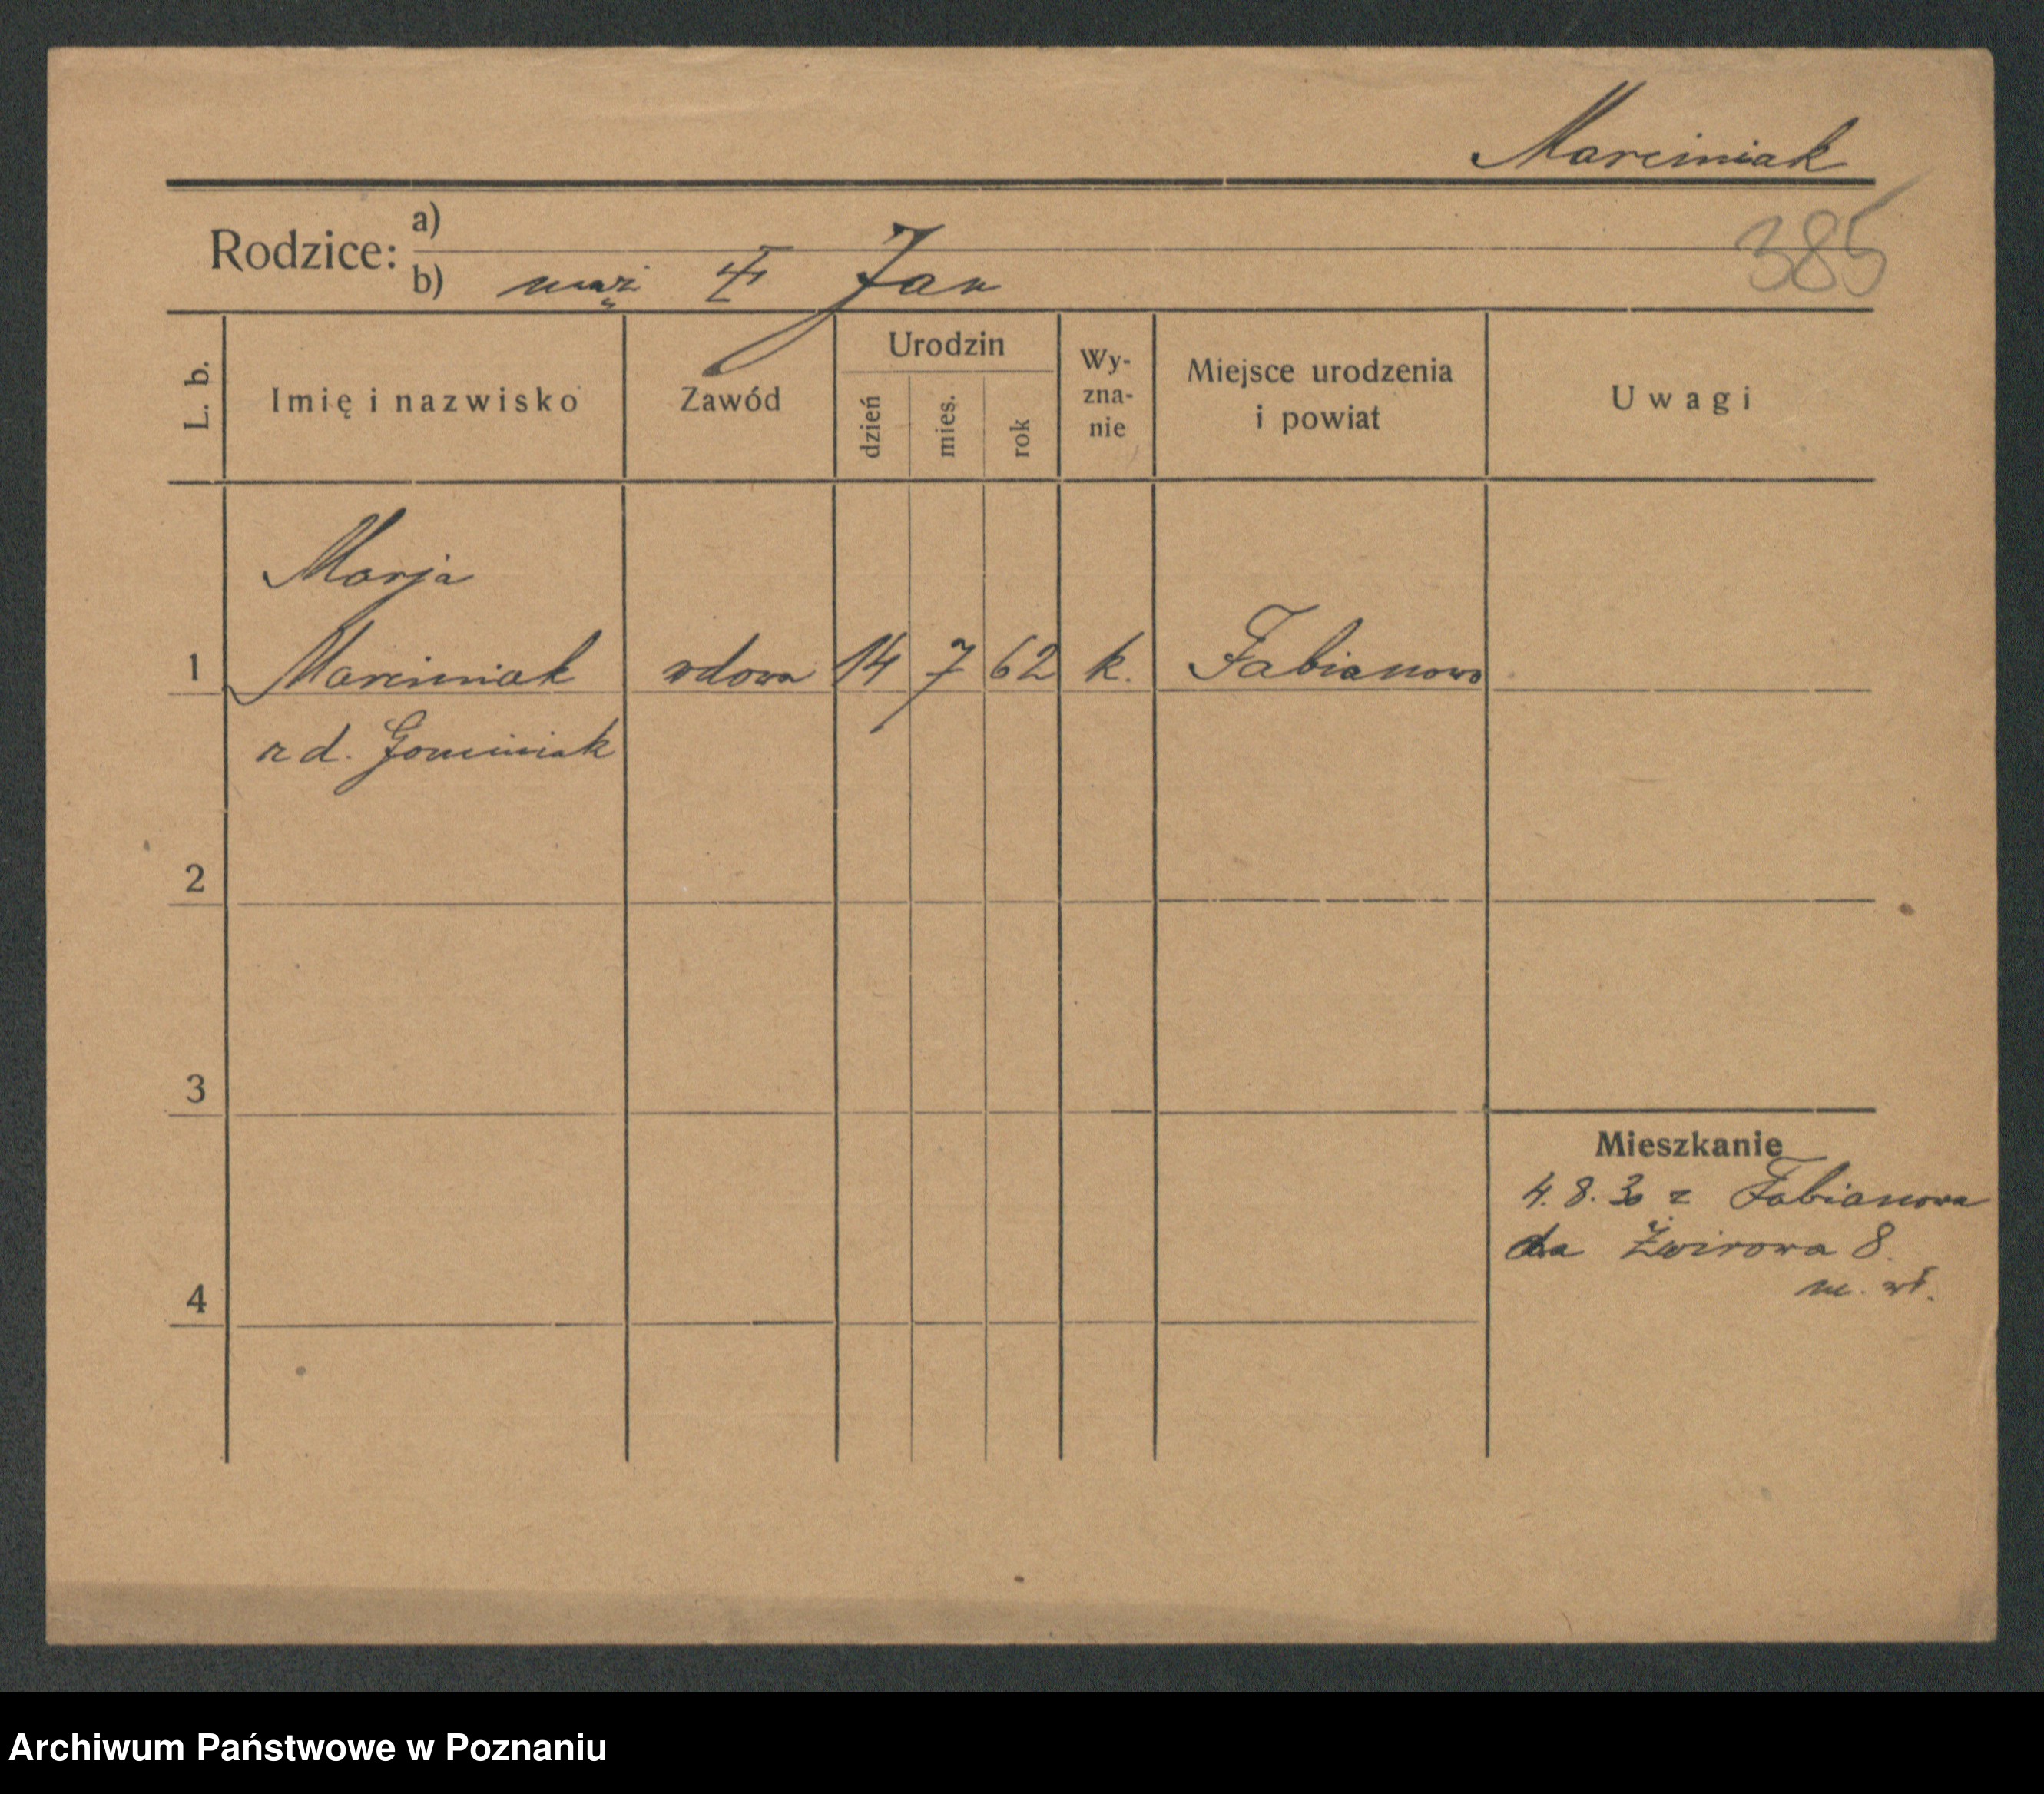 Marciniak
385
Rodzice: a)
b) mąż † Jan
L. b.
Imię i nazwisko
Zawód
Urodzin
dzień
mies.
rok
Wy-
zna-
nie
Miejsce urodzenia
i powiat
Uwagi
Marja
1 Marciniak wdowa 14 7 62 k. Fabianowo
z d.
2
3
4
Mieszkanie
4. 8. 30 z Fabianowa
na Żwirowa 8.
m. wł.
Archiwum Państwowe w Poznaniu